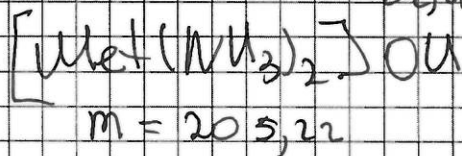 [Met(NH₃)₂]OH
m = 205,22